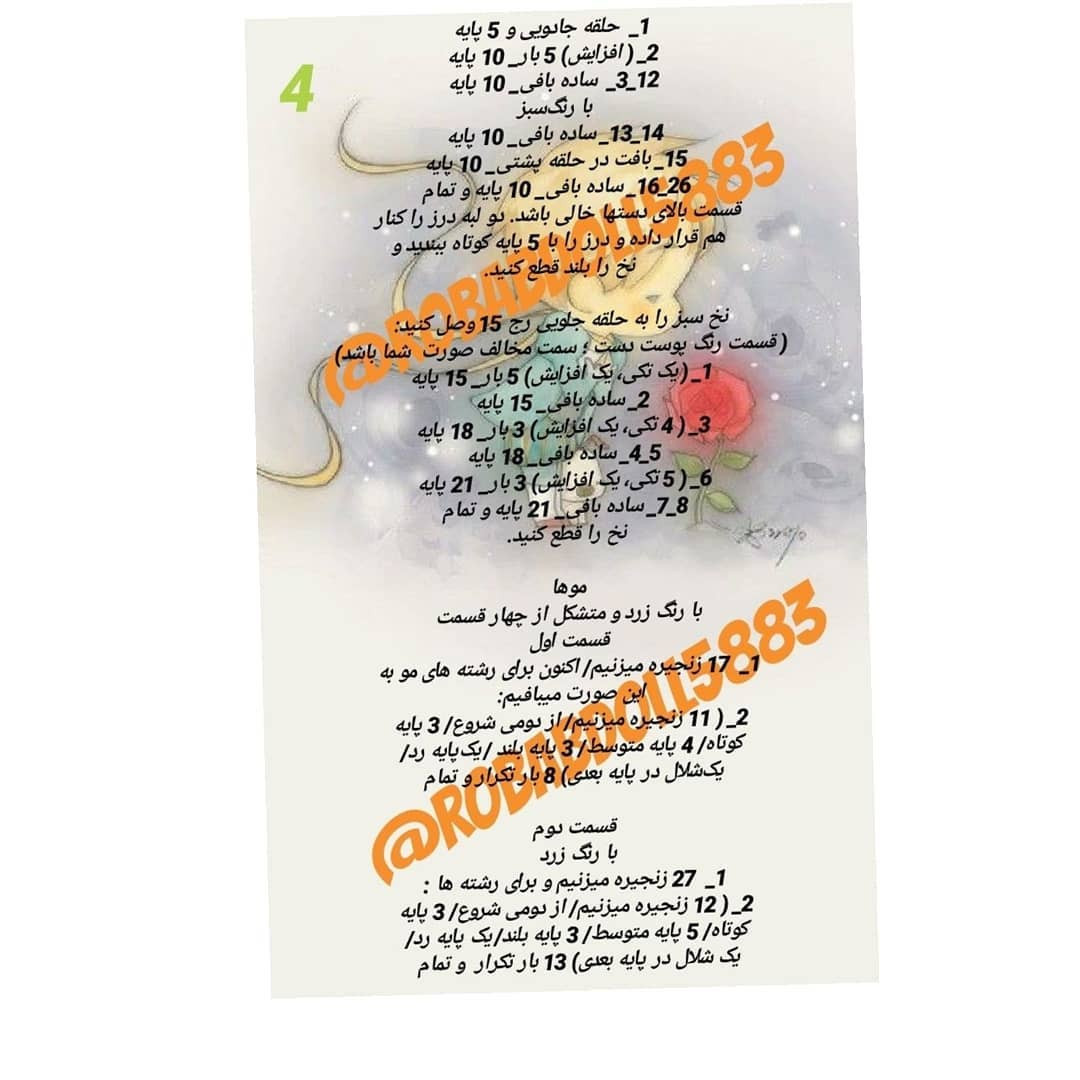 4
1_ حلقه جادویی و 5 پایه
2_ ( افزایش) 5 بار_ 10 پایه
3_12_ ساده بافی_ 10 پایه
با رنگ سبز
13_14_ ساده بافی_ 10 پایه
15_ بافت در حلقه پشتی_ 10 پایه
16_26_ ساده بافی_ 10 پایه و تمام
قسمت بالای دستها خالی باشد. دو لبه درز را کنار
هم قرار داده و درز را با 5 پایه کوتاه ببندید و
نخ را بلند قطع کنید.
نخ سبز را به حلقه جلویی رج 15 وصل کنید:
( قسمت رنگ پوست دست ؛ سمت مخالف صورت شما باشد)
1_ (یک تکی، یک افزایش) 5 بار_ 15 پایه
2_ ساده بافی_ 15 پایه
3_ ( 4 تکی، یک افزایش) 3 بار_ 18 پایه
4_5_ ساده بافی_ 18 پایه
6_ ( 5 تکی، یک افزایش) 3 بار_ 21 پایه
7_8_ ساده بافی_ 21 پایه و تمام
نخ را قطع کنید.
موها
با رنگ زرد و متشکل از چهار قسمت
قسمت اول
1_ 17 زنجیره میزنیم/ اکنون برای رشته های مو به
این صورت میبافیم:
2_ ( 11 زنجیره میزنیم/ از دومی شروع/ 3 پایه
کوتاه/ 4 پایه متوسط/ 3 پایه بلند /یک پایه رد/
یک شلال در پایه بعدی) 8 بار تکرار و تمام
قسمت دوم
با رنگ زرد
1_ 27 زنجیره میزنیم و برای رشته ها :
2_ ( 12 زنجیره میزنیم/ از دومی شروع/ 3 پایه
کوتاه/ 5 پایه متوسط/ 3 پایه بلند/یک پایه رد/
یک شلال در پایه بعدی) 13 بار تکرار و تمام
@ROBABDOLL5883
@ROBABDOLL5883